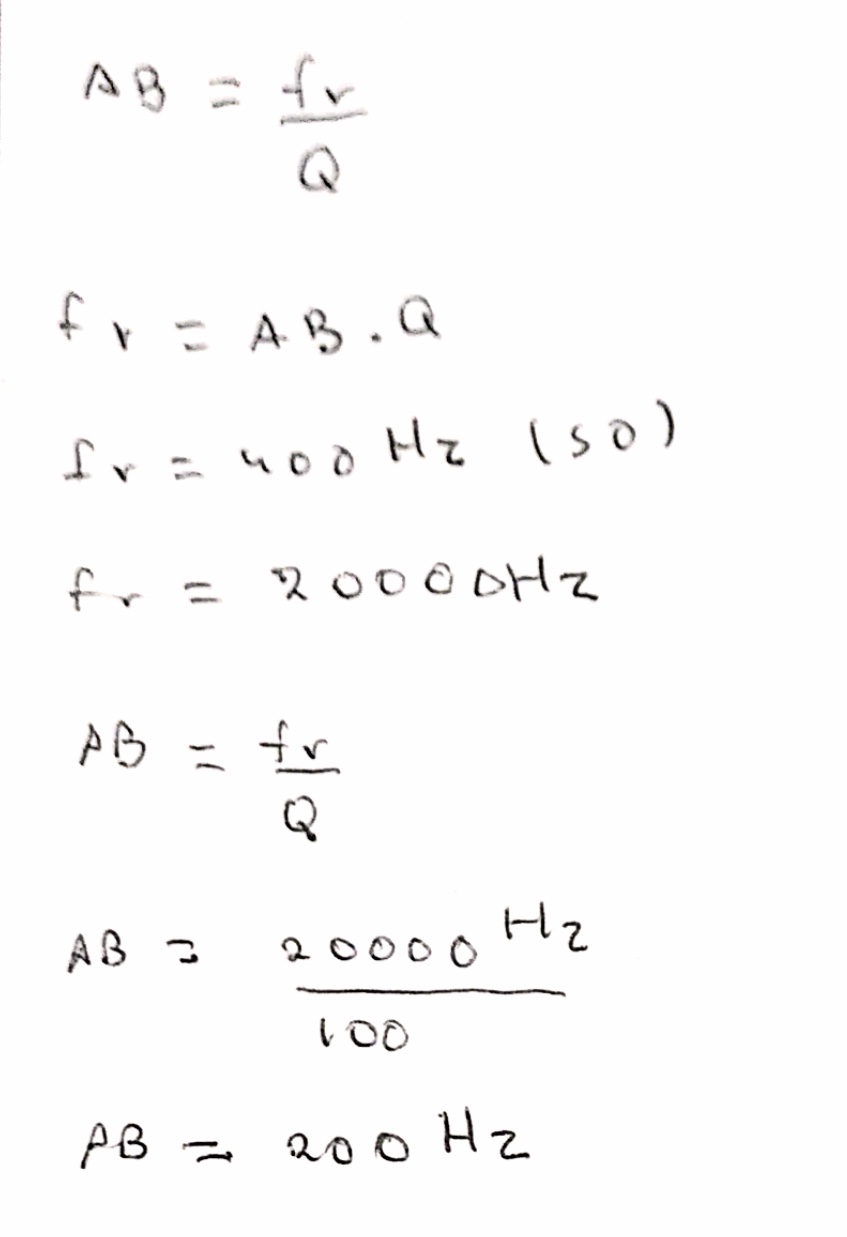 AB = fr
Q
fr = AB . Q
fr = 400 Hz (50)
fr = 20000Hz
AB = fr
Q
AB = 20000 Hz
100
AB = 200 Hz